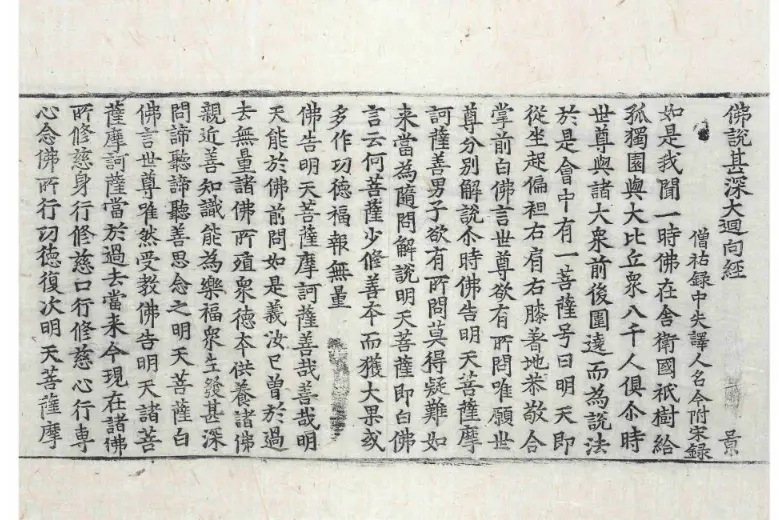 佛說甚深大迴向經
景
僧祐録中失譯人名今附宋録
如是我聞一時佛在舍衛國祇樹給
孤獨園與大比丘衆八千人俱尒時
世尊與諸大衆前後圍遶而為說法
於是會中有一菩薩号曰明天即
從坐起偏袒右肩右膝著地恭敬合
掌前白佛言世尊欲有所問唯願世
尊分別解說尒時佛告明天菩薩摩
訶薩善男子欲有所問莫得疑難如
来當為隨問解說明天菩薩即白佛
言云何菩薩少修善夲而獲大果或
多作功德福報無量
佛告明天菩薩摩訶薩善哉善哉明
天能於佛前問如是義汝已曾於過
去無量諸佛所殖衆德夲供養諸佛
親近善知識能為樂福衆生發甚深
問諦聽諦聽善思念之明天菩薩白
佛言世尊唯然受教佛告明天諸菩
薩摩訶薩當於過去當来今現在諸佛
所修慈身行修慈口行修慈心行専
心念佛所行功德復次明天菩薩摩